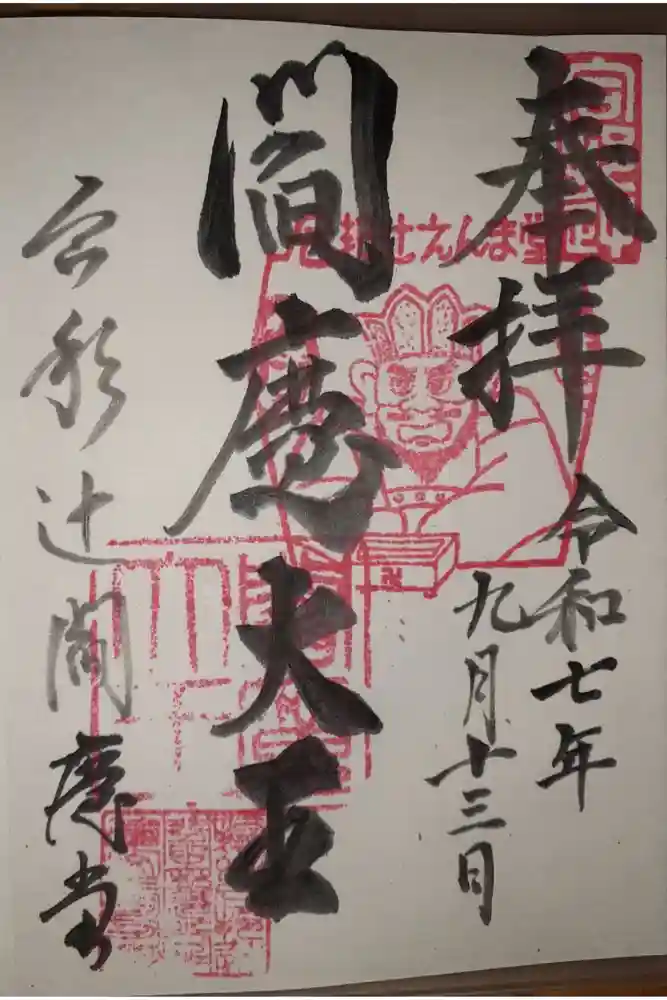 奉拝
令和七年
九月十三日
閻魔大王
合邦辻閻魔堂
合邦辻えんま堂